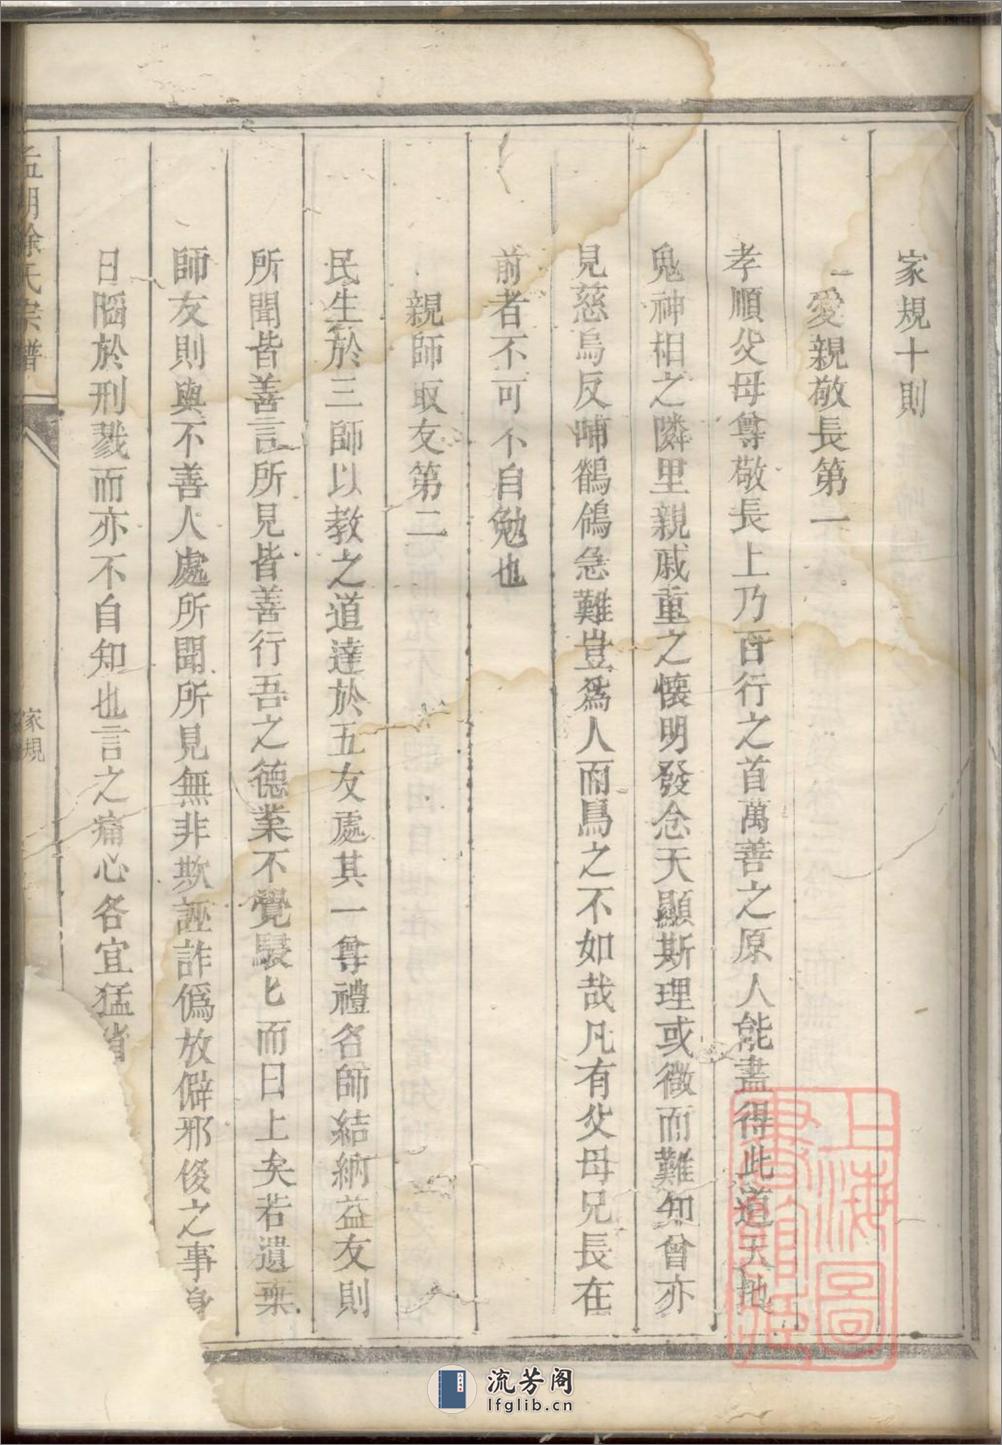 家規十則
一愛親敬長第一
孝順父母尊敬長上乃百行之首萬善之原人能盡得此道天地
鬼神相之隣里親戚重之懷明發念天顯斯理或微而難知曾亦
見慈烏反哺鶺鴒急難豈爲人而鳥之不如哉凡有父母兄長在
前者不可不自勉也
親師取友第二
民生於三師以教之道達於五友處其一尊禮名師結納益友則
所聞皆善言所見皆善行吾之德業不覺駸匕而日上矣若遺棄
師友則與不善人處所聞所見無非欺誣詐僞放僻邪侈之事身
日陷於刑戮而亦不自知也言之痛心各宜猛省
孟湖徐氏宗譜
家規
上海圖書館藏
流芳阁
lfglib.cn